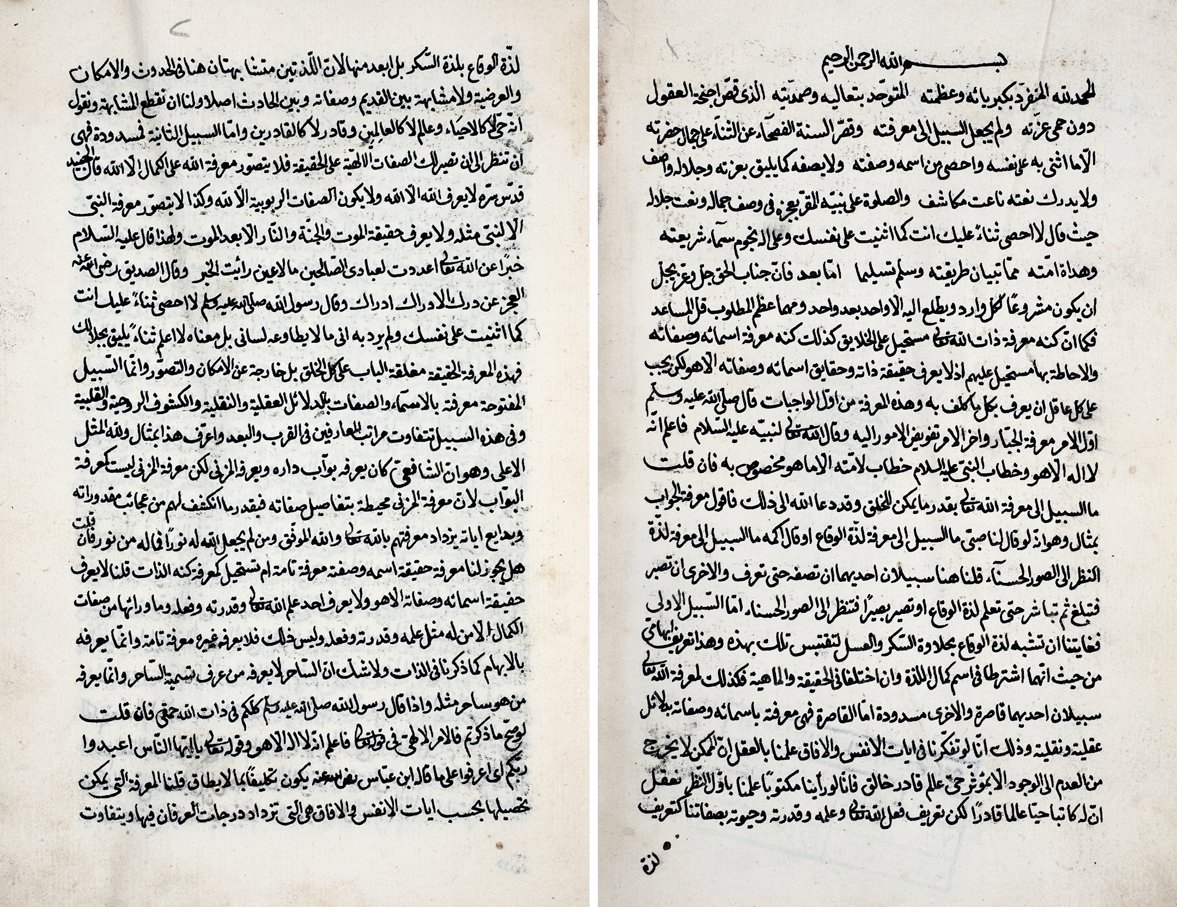 بسم الله الرحمن الرحيم
الحمد لله المنفرد بكبريائه وعظمته المتوحد بتعاليه وصمديته الذى قص اجنحة العقول
دون حمى عزته ولم يجعل السبيل الى معرفته وقصر السنة الفصحاء عن الثناء على جمال حضرته
الا ما اثنى به على نفسه واحصى من اسمه وصفته ولا يصفه كما يليق بعزته وجلاله واصف
ولا يدرك نعته ناعت مكاشف والصلوة على نبيه المقر بعجزه فى وصف جماله ونعت جلاله
حيث قال لا احصى ثناء عليك انت كما اثنيت على نفسك وعلى اله نجوم سماء شريعته
وهداة امته تبيان طريقته وسلم تسليما اما بعد فان جناب الحق جل وعز يجل
ان يكون مشروعا لكل وارد ويطلع اليه الا واحد بعد واحد ومهما عظم المطلوب قل المساعد
فكما ان كنه معرفة ذات الله تعالى مستحيل على الخلايق كذلك كنه معرفة اسمائه وصفاته
والاحاطة بها مستحيل عليهم اذ لا يعرف حقيقة ذاته وحقايق اسمائه وصفاته الا هو لكن يجب
على كل عاقل ان يعرف بكل ما كلف به وهذه المعرفة من اول الواجبات قال صلى الله عليه وسلم
اول الامر معرفة الجبار واخر الامر تفويض الامور اليه وقال الله تعالى لنبيه عليه السلام فاعلم انه
لا اله الا هو وخطاب النبى عليه السلام خطاب لامته الا ما هو مخصوص به فان قلت
ما السبيل الى معرفة الله تعالى بقدر ما يمكن للخلق وقد دعا الله الى ذلك فاقول معرفة الجواب
بمثال وهو انه لو قال لنا صبى ما السبيل الى معرفة لذة الوقاع او قال اكمه ما السبيل الى معرفة لذة
النظر الى الصور الحسناء قلنا هنا سبيلان احديهما ان تصفه حتى تعرف والاخرى ان تصبر
فتبلغ ثم تباشر حتى تعلم لذة الوقاع او تصير بصيرا فتنظر الى الصور الحسناء اما السبيل الاولى
فغايتنا ان تشبه لذة الوقاع بحلاوة السكر والعسل لتقتبس تلك بهذه وهذا تعريف ايهامى
من حيث انهما اشترطا فى اسم كمال اللذة وان اختلفا فى الحقيقة والماهية فكذلك لمعرفة الله تعالى
سبيلان احديهما قاصرة والاخرى مسدودة اما القاصرة فهى معرفته باسمائه وصفاته بدلائل
عقلية ونقلية وذلك انا لو تفكرنا فى ايات الانفس والافاق علمنا بالعقل ان الممكن لا يخرج
من العدم الى الوجود الا بمؤثر حى عالم قادر خالق فانا لو راينا مكتوبا علمنا باول النظر نعقل
ان له كاتبا حيا عالما قادرا لكن تعريف فعل الله تعالى وعلمه وقدرته وحيوته بصفاتنا كتعريف
لذة
لذة الوقاع بلذة السكر بل ابعد منها لان اللذتين متشابهتان هنا فى الحدوث والامكان
والعرضية ولا مشابهة بين القديم وصفاته وبين الحادث اصلا ولنا ان نقطع المشابهة ونقول
انه حى لا كالاحياء وعالم لا كالعالمين وقادر لا كالقادرين واما السبيل الثانية المسدودة فهى
ان تنظر الى ان تصير لك الصفات الالهية على الحقيقة فلا يتصور معرفة الله على الكمال الا الله قال الجنيد
قدس سره لا يعرف الله الا الله ولا يكون الصفات الربوبية الا لله وكذا لا يتصور معرفة النبى
الا لنبى مثله ولا يعرف حقيقة الموت والجنة والنار الا بعد الموت ولهذا قال عليه السلام
خبرا عن الله تعالى اعددت لعبادى الصالحين ما لا عين رائت الخبر وقال الصديق رضى الله عنه
العجز عن درك الادراك ادراك وقال رسول الله صلى الله عليه وسلم لا احصى ثناء عليك انت
كما اثنيت على نفسك ولم يرد به انى ما لا يطاوعه لسانى بل معناه لا اعلم ثناء يليق بجلالك
فهذه المعرفة الحقيقة مغلقة الباب على كل الخلق بل خارجة عن الامكان والتصور وانما السبيل
المفتوحة معرفته بالاسماء والصفات بالدلائل العقلية والنقلية والكشوف الروحية والقلبية
وفى هذه السبيل تتفاوت مراتب العارفين فى القرب والبعد واعرف هذا بمثال ولله المثل
الاعلى وهو ان الشافعى كان يعرفه بواب داره ويعرفه المزنى لكن معرفة المزنى ليست كمعرفة
البواب لان معرفة المزنى محيطة بتفاصيل صفاته فبقدر ما انكشف لهم من عجائب مقدوراته
وبدايع اياته يزداد معرفتهم بالله تعالى والله الموفق ومن لم يجعل الله له نورا فما له من نور فان قلت
هل يجوز لنا معرفة حقيقة اسمه وصفته معرفة تامة ام تستحيل كمعرفة كنه الذات قلنا لا يعرف
حقيقة اسمائه وصفاته الا هو ولا يعرف احد علم الله تعالى وقدرته وفعله وما ورائها من صفات
الكمال الا من له مثل علمه وقدرته وفعله وليس ذلك فلا يعرفه غيره معرفة تامة وانما يعرفه
بالابهام كما ذكرنا فى الذات ولا شك ان الساحر لا يعرفه من عرف تسمية الساحر وانما يعرفه
من هو ساحر مثله واذا قال رسول الله صلى الله عليه وسلم كلكم فى ذات الله حمقى فان قلت
لو صح ما ذكرتم فالامر الالهى فى قوله تعالى فاعلم انه لا اله الا هو وقوله تعالى ياايها الناس اعبدوا
ربكم اى اعرفوا على ما قاله ابن عباس رضى الله عنه يكون تكليفا بما لا يطاق قلنا المعرفة التى يمكن
تحصيلها بحسب ايات الانفس والافاق هى التى تزداد درجات العرفان فيها ويتفاوت